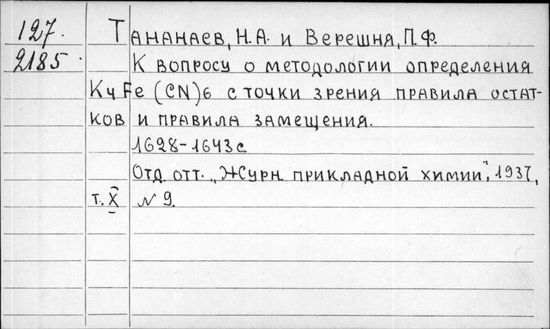 127. Тананаев, Н.А. и Верешня, П.Ф.
2185. К вопросу о методологии определения
K4Fe(CN)6 с точки зрения правила остат-
ков и правила замещения.
1628-1643 с.
Отд. отт. „Журн. прикладной химии", 1937,
т. X, N 9.